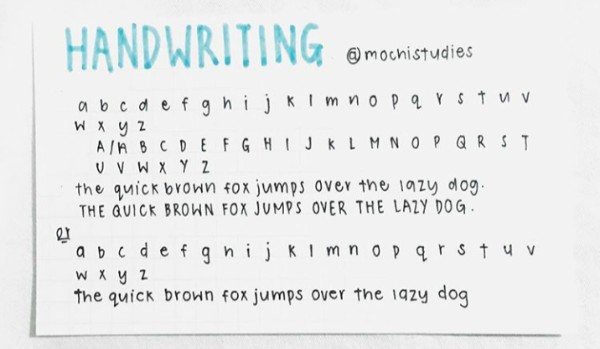 HANDWRITING @mochistudies
a b c d e f g h i j k l m n o p q r s t u v
w x y z
A/A B C D E F G H I J K L M N O P Q R S T
U V W X Y Z
the quick brown fox jumps over the lazy dog.
THE QUICK BROWN FOX JUMPS OVER THE LAZY DOG.
or
a b c d e f g h i j k l m n o p q r s t u v
w x y z
the quick brown fox jumps over the lazy dog